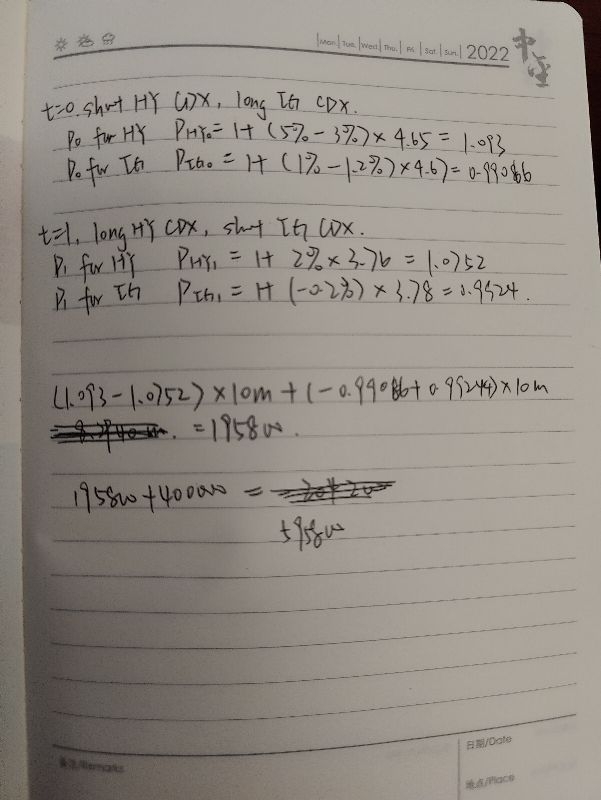 Mon. Tue. Wed. Thu. Fri. Sat. Sun. 2022
t=0. short HY CDX, long IG CDX.
P0 for HY PHY0 = 1+ (5%-3%)×4.65 = 1.093
P0 for IG PIG0 = 1+ (1%-1.2%)×4.67 = 0.99066
t=1, long HY CDX, short IG CDX.
P1 for HY PHY1 = 1+ 2%×3.76 = 1.0752
P1 for IG PIG1 = 1+ (-0.2%)×3.78 = 0.9924.
(1.093-1.0752)×10m+(-0.99066+0.99244)×10m
= 195800.
195800+400000 =
595800
备注/Remarks
日期/Date
地点/Place